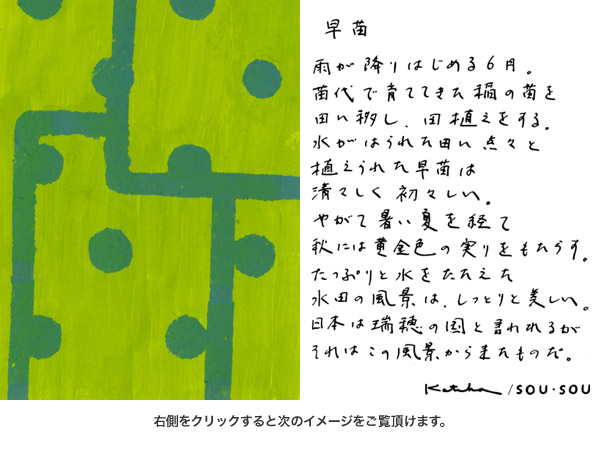 早苗
雨が降りはじめる6月。
苗代で育ててきた稲の苗を
田に移し、田植えをする。
水がはられた田に点々と
植えられた早苗は
清々しく初々しい。
やがて暑い夏を経て
秋には黄金色の実りをもたらす。
たっぷりと水をたたえた
水田の風景は、しっとりと美しい。
日本は瑞穂の国と言われるが
それはこの風景から来たものだ。
/SOU・SOU
右側をクリックすると次のイメージをご覧頂けます。